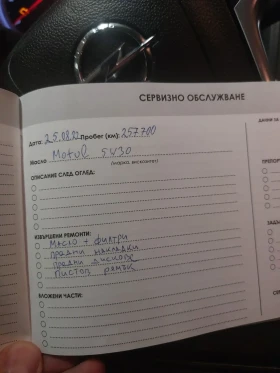 СЕРВИЗНО ОБСЛУЖВАНЕ
Дата: 25.08.22 Пробег (км): 257.700
Масло Motul 5W30
(марка, вискозитет)
ОПИСАНИЕ СЛЕД ОГЛЕД:
ИЗВЪРШЕНИ РЕМОНТИ:
Масло + филтри
предни накладки
предни дискове
Пистов ремък
ВЛОЖЕНИ ЧАСТИ: